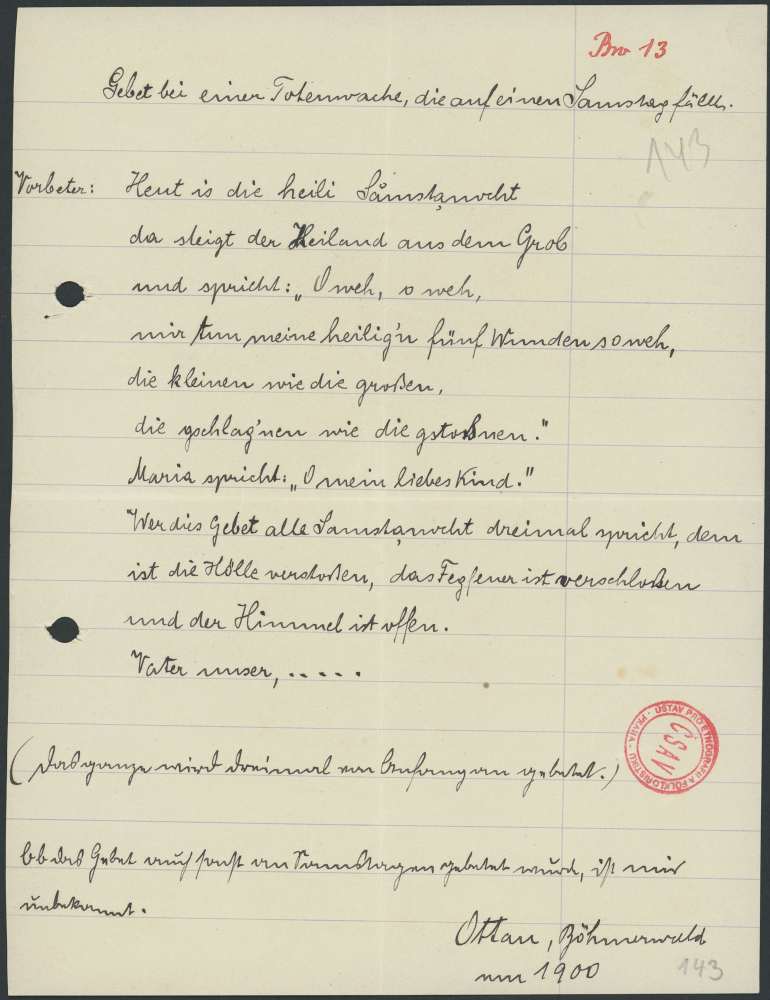 Bw 13
Gebet bei einer Totenwache, die auf einen Samstag fällt.
143
Vorbeter: Heut is die heili Såmstanocht
da steigt der Heiland aus dem Grob
und spricht: „O weh, o weh,
mir tun meine heilig'n fünf Wunden so weh,
die kleinen wie die großen,
die gschlag'nen wie die gstoßnen."
Maria spricht: „O mein liebes Kind."
Wer dies Gebet alle Samstanocht dreimal spricht, dem
ist die Hölle verstoßen, das Fegfeuer ist verschloßen
und der Himmel ist offen.
Vater unser, .....
ÚSTAV PRO ETNOGRAFII A FOLKLORISTIKU · PRAHA ·
ČSAV
(Das ganze wird dreimal von Anfang an gebetet.)
Ob das Gebet auch sonst an Samstagen gebetet wurde, ist mir
unbekannt.
Ottau, Böhmerwald
um 1900
143